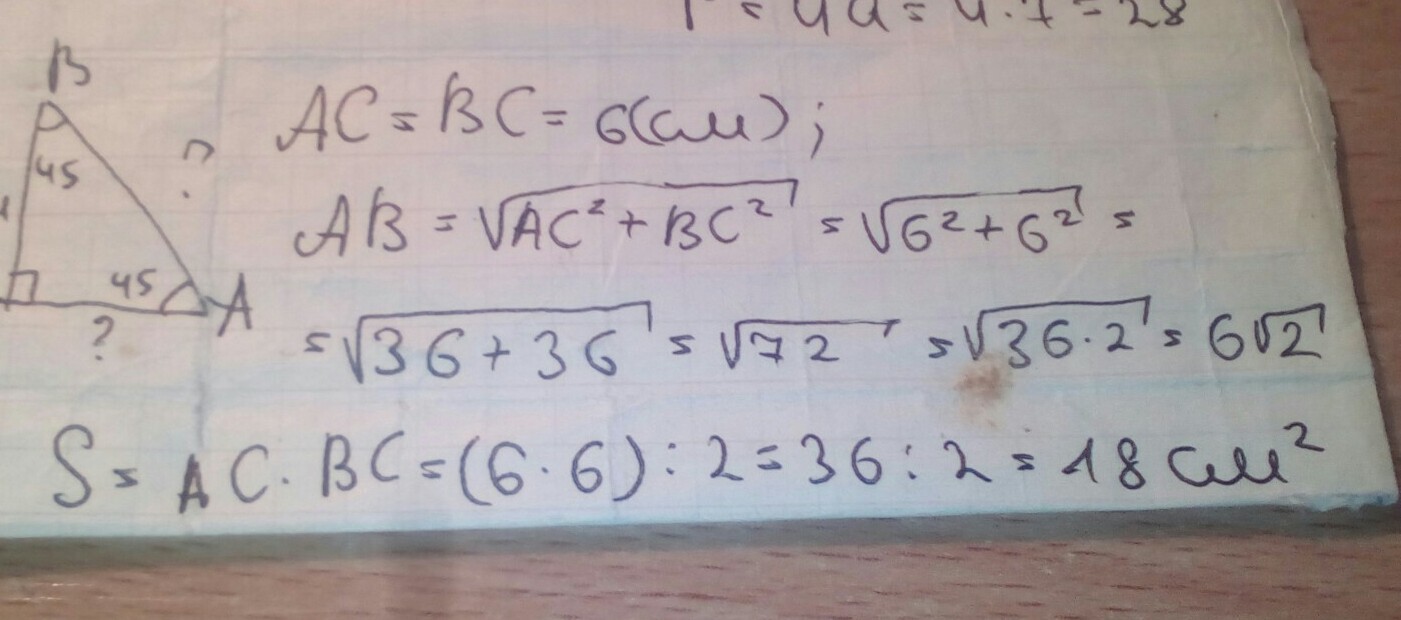 P = 4a = 4 · 7 = 28
B
AC = BC = 6(см);
45
?
AB = √(AC² + BC²) = √(6² + 6²) =
45
A
?
= √(36 + 36) = √72 = √(36 · 2) = 6√2
S = AC · BC = (6 · 6) : 2 = 36 : 2 = 18 см²